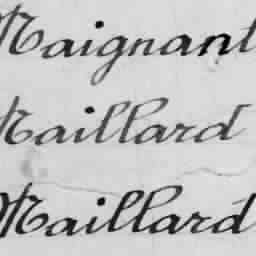 Maignant
Maillard
Maillard